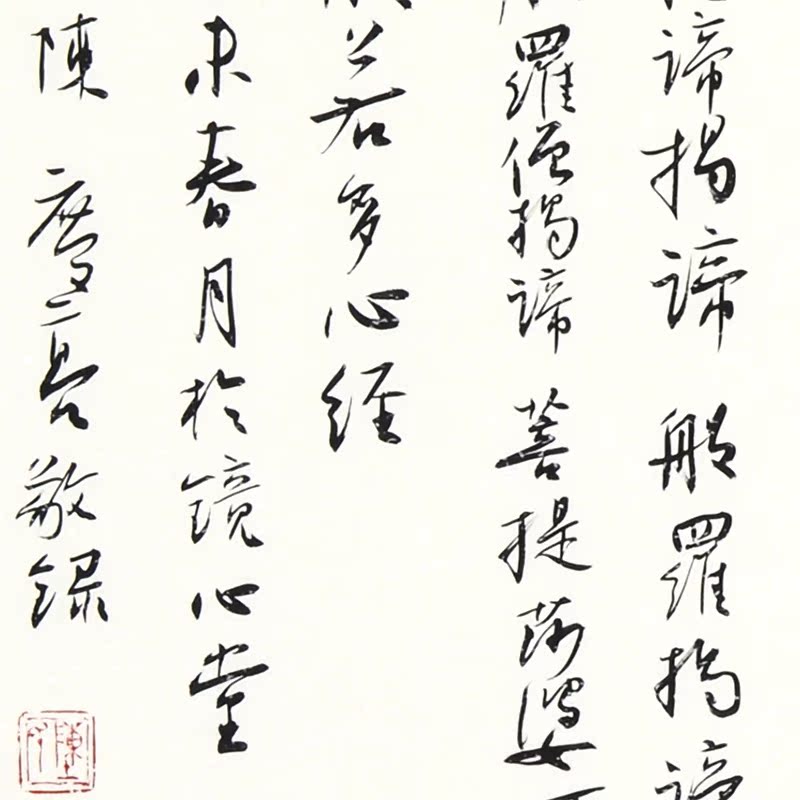 諦揭諦 般羅揭諦
羅僧揭諦 菩提莎婆
若多心經
未春月於鏡心堂
陳 慶亮敬録